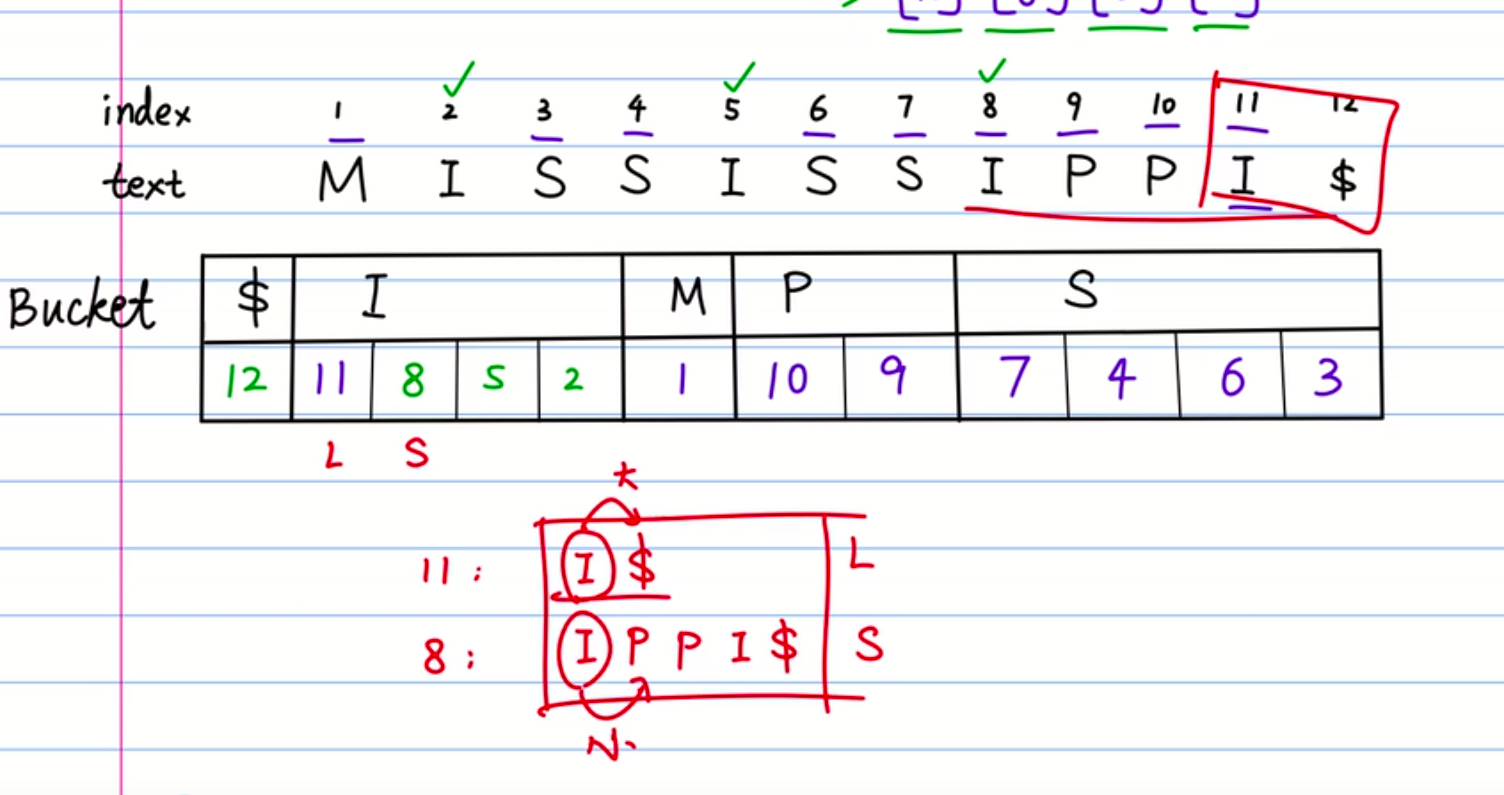 index 1 2 3 4 5 6 7 8 9 10 11 12
text M I S S I S S I P P I $
Bucket $ I M P S
12 11 8 5 2 1 10 9 7 4 6 3
L S
11: I $ L
8: I P P I $ S